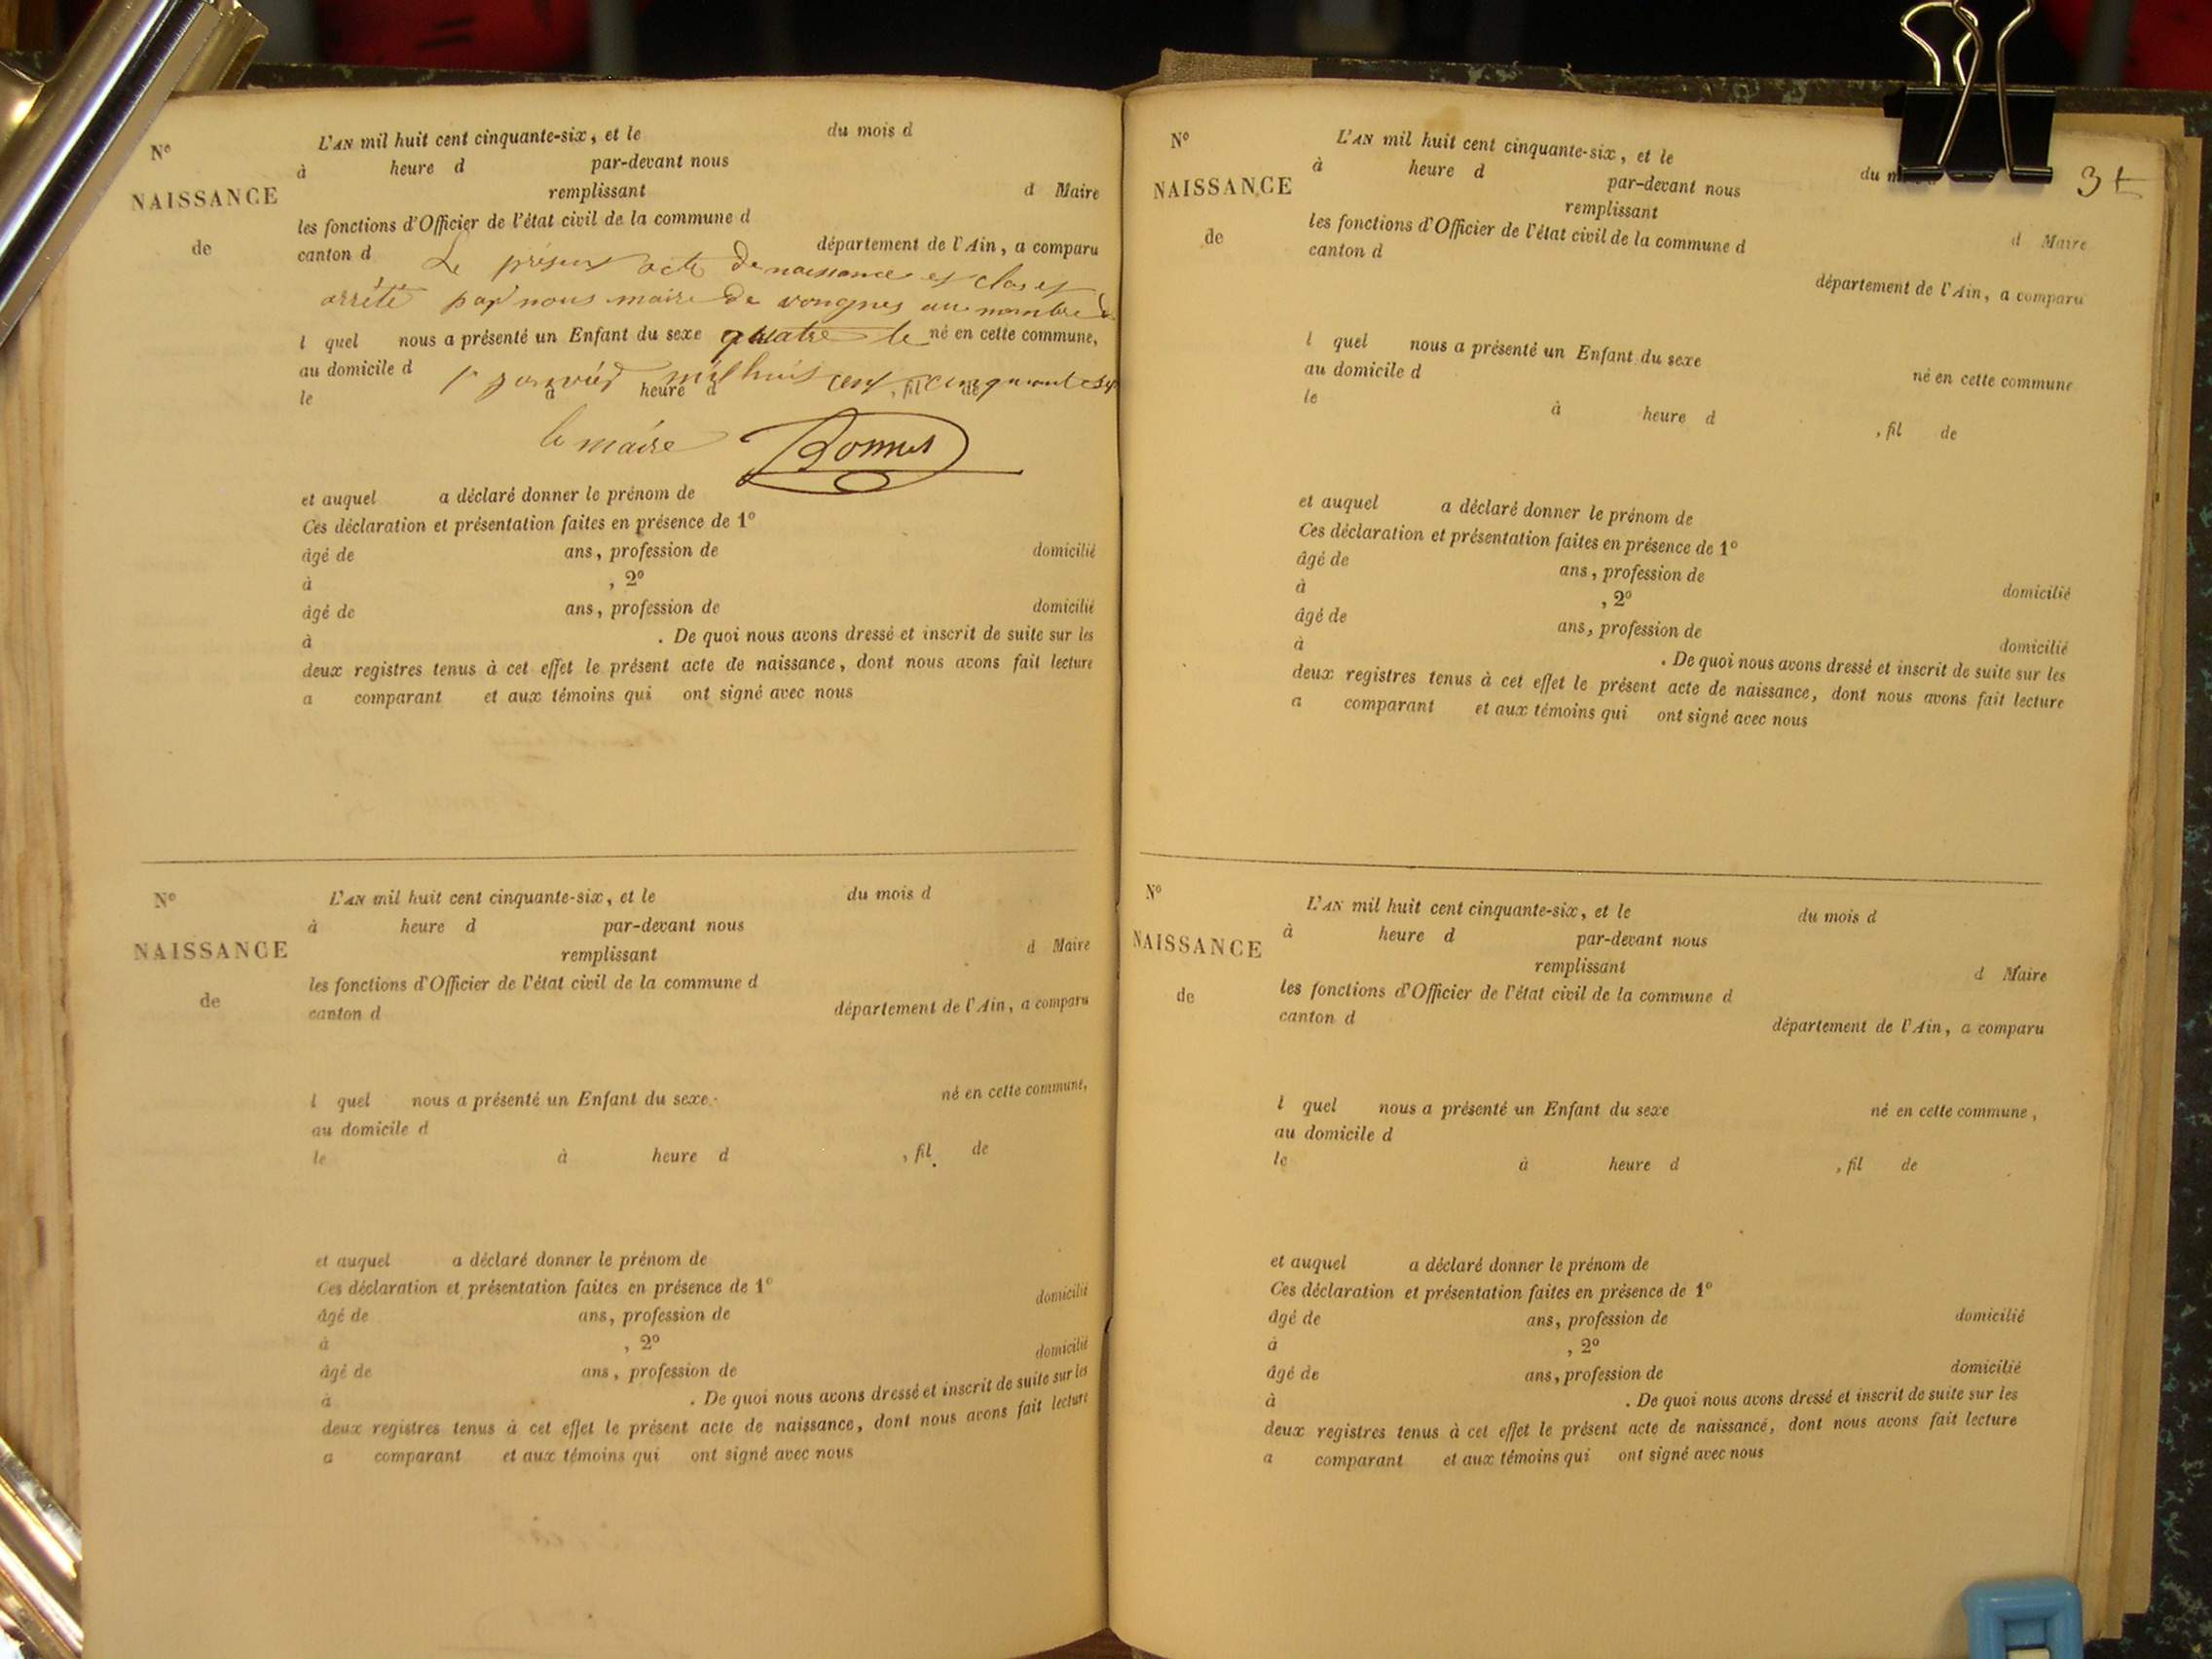 N° L'AN mil huit cent cinquante-six, et le du mois d
à heure d par-devant nous
NAISSANCE remplissant d Maire
les fonctions d'Officier de l'état civil de la commune d
de canton d département de l'Ain, a comparu
Le présent acte de naissance est clos et
arrêté par nous maire de vongnes au nombre de
l quel nous a présenté un Enfant du sexe quatre le né en cette commune,
au domicile d 1er janvier mil huit cent cinquante sept
le à heure d , fil de
le maire Bonnet
et auquel a déclaré donner le prénom de
Ces déclaration et présentation faites en présence de 1°
âgé de ans, profession de domicilié
à , 2°
âgé de ans, profession de domicilié
à . De quoi nous avons dressé et inscrit de suite sur les
deux registres tenus à cet effet le présent acte de naissance, dont nous avons fait lecture
a comparant et aux témoins qui ont signé avec nous
N° L'AN mil huit cent cinquante-six, et le du mois d
à heure d par-devant nous
NAISSANCE remplissant d Maire
les fonctions d'Officier de l'état civil de la commune d
de canton d département de l'Ain, a comparu
l quel nous a présenté un Enfant du sexe né en cette commune,
au domicile d
le à heure d , fil de
et auquel a déclaré donner le prénom de
Ces déclaration et présentation faites en présence de 1°
âgé de ans, profession de domicilié
à , 2°
âgé de ans, profession de domicilié
à . De quoi nous avons dressé et inscrit de suite sur les
deux registres tenus à cet effet le présent acte de naissance, dont nous avons fait lecture
a comparant et aux témoins qui ont signé avec nous
N° L'AN mil huit cent cinquante-six, et le du
à heure d par-devant nous
NAISSANCE remplissant d Maire
les fonctions d'Officier de l'état civil de la commune d
de canton d département de l'Ain, a comparu
l quel nous a présenté un Enfant du sexe né en cette commune
au domicile d
le à heure d , fil de
et auquel a déclaré donner le prénom de
Ces déclaration et présentation faites en présence de 1°
âgé de ans, profession de domicilié
à , 2°
âgé de ans, profession de domicilié
à . De quoi nous avons dressé et inscrit de suite sur les
deux registres tenus à cet effet le présent acte de naissance, dont nous avons fait lecture
a comparant et aux témoins qui ont signé avec nous
N° L'AN mil huit cent cinquante-six, et le du mois d
à heure d par-devant nous
NAISSANCE remplissant d Maire
les fonctions d'Officier de l'état civil de la commune d
de canton d département de l'Ain, a comparu
l quel nous a présenté un Enfant du sexe né en cette commune,
au domicile d
le à heure d , fil de
et auquel a déclaré donner le prénom de
Ces déclaration et présentation faites en présence de 1°
âgé de ans, profession de domicilié
à , 2°
âgé de ans, profession de domicilié
à . De quoi nous avons dressé et inscrit de suite sur les
deux registres tenus à cet effet le présent acte de naissance, dont nous avons fait lecture
a comparant et aux témoins qui ont signé avec nous